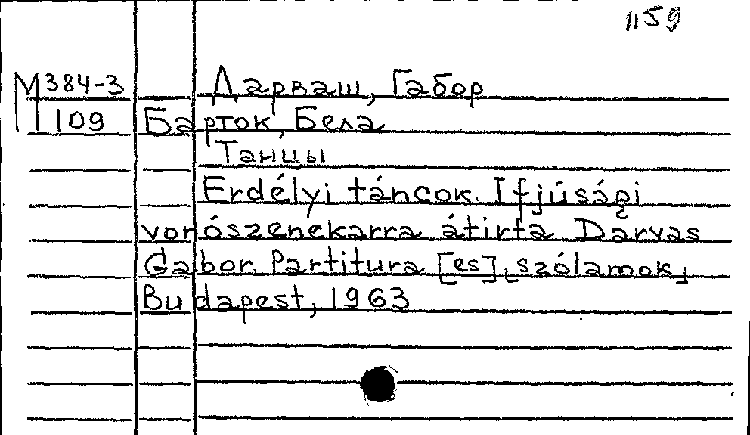 1159
М384-3 Дарваш, Габор
109 Барток, Бела
Танцы
Erdélyi táncok. Ifjúsági
vonószenekarra átirta Darvas
Gabor. Partitura [es] [szólamok]
Budapest, 1963